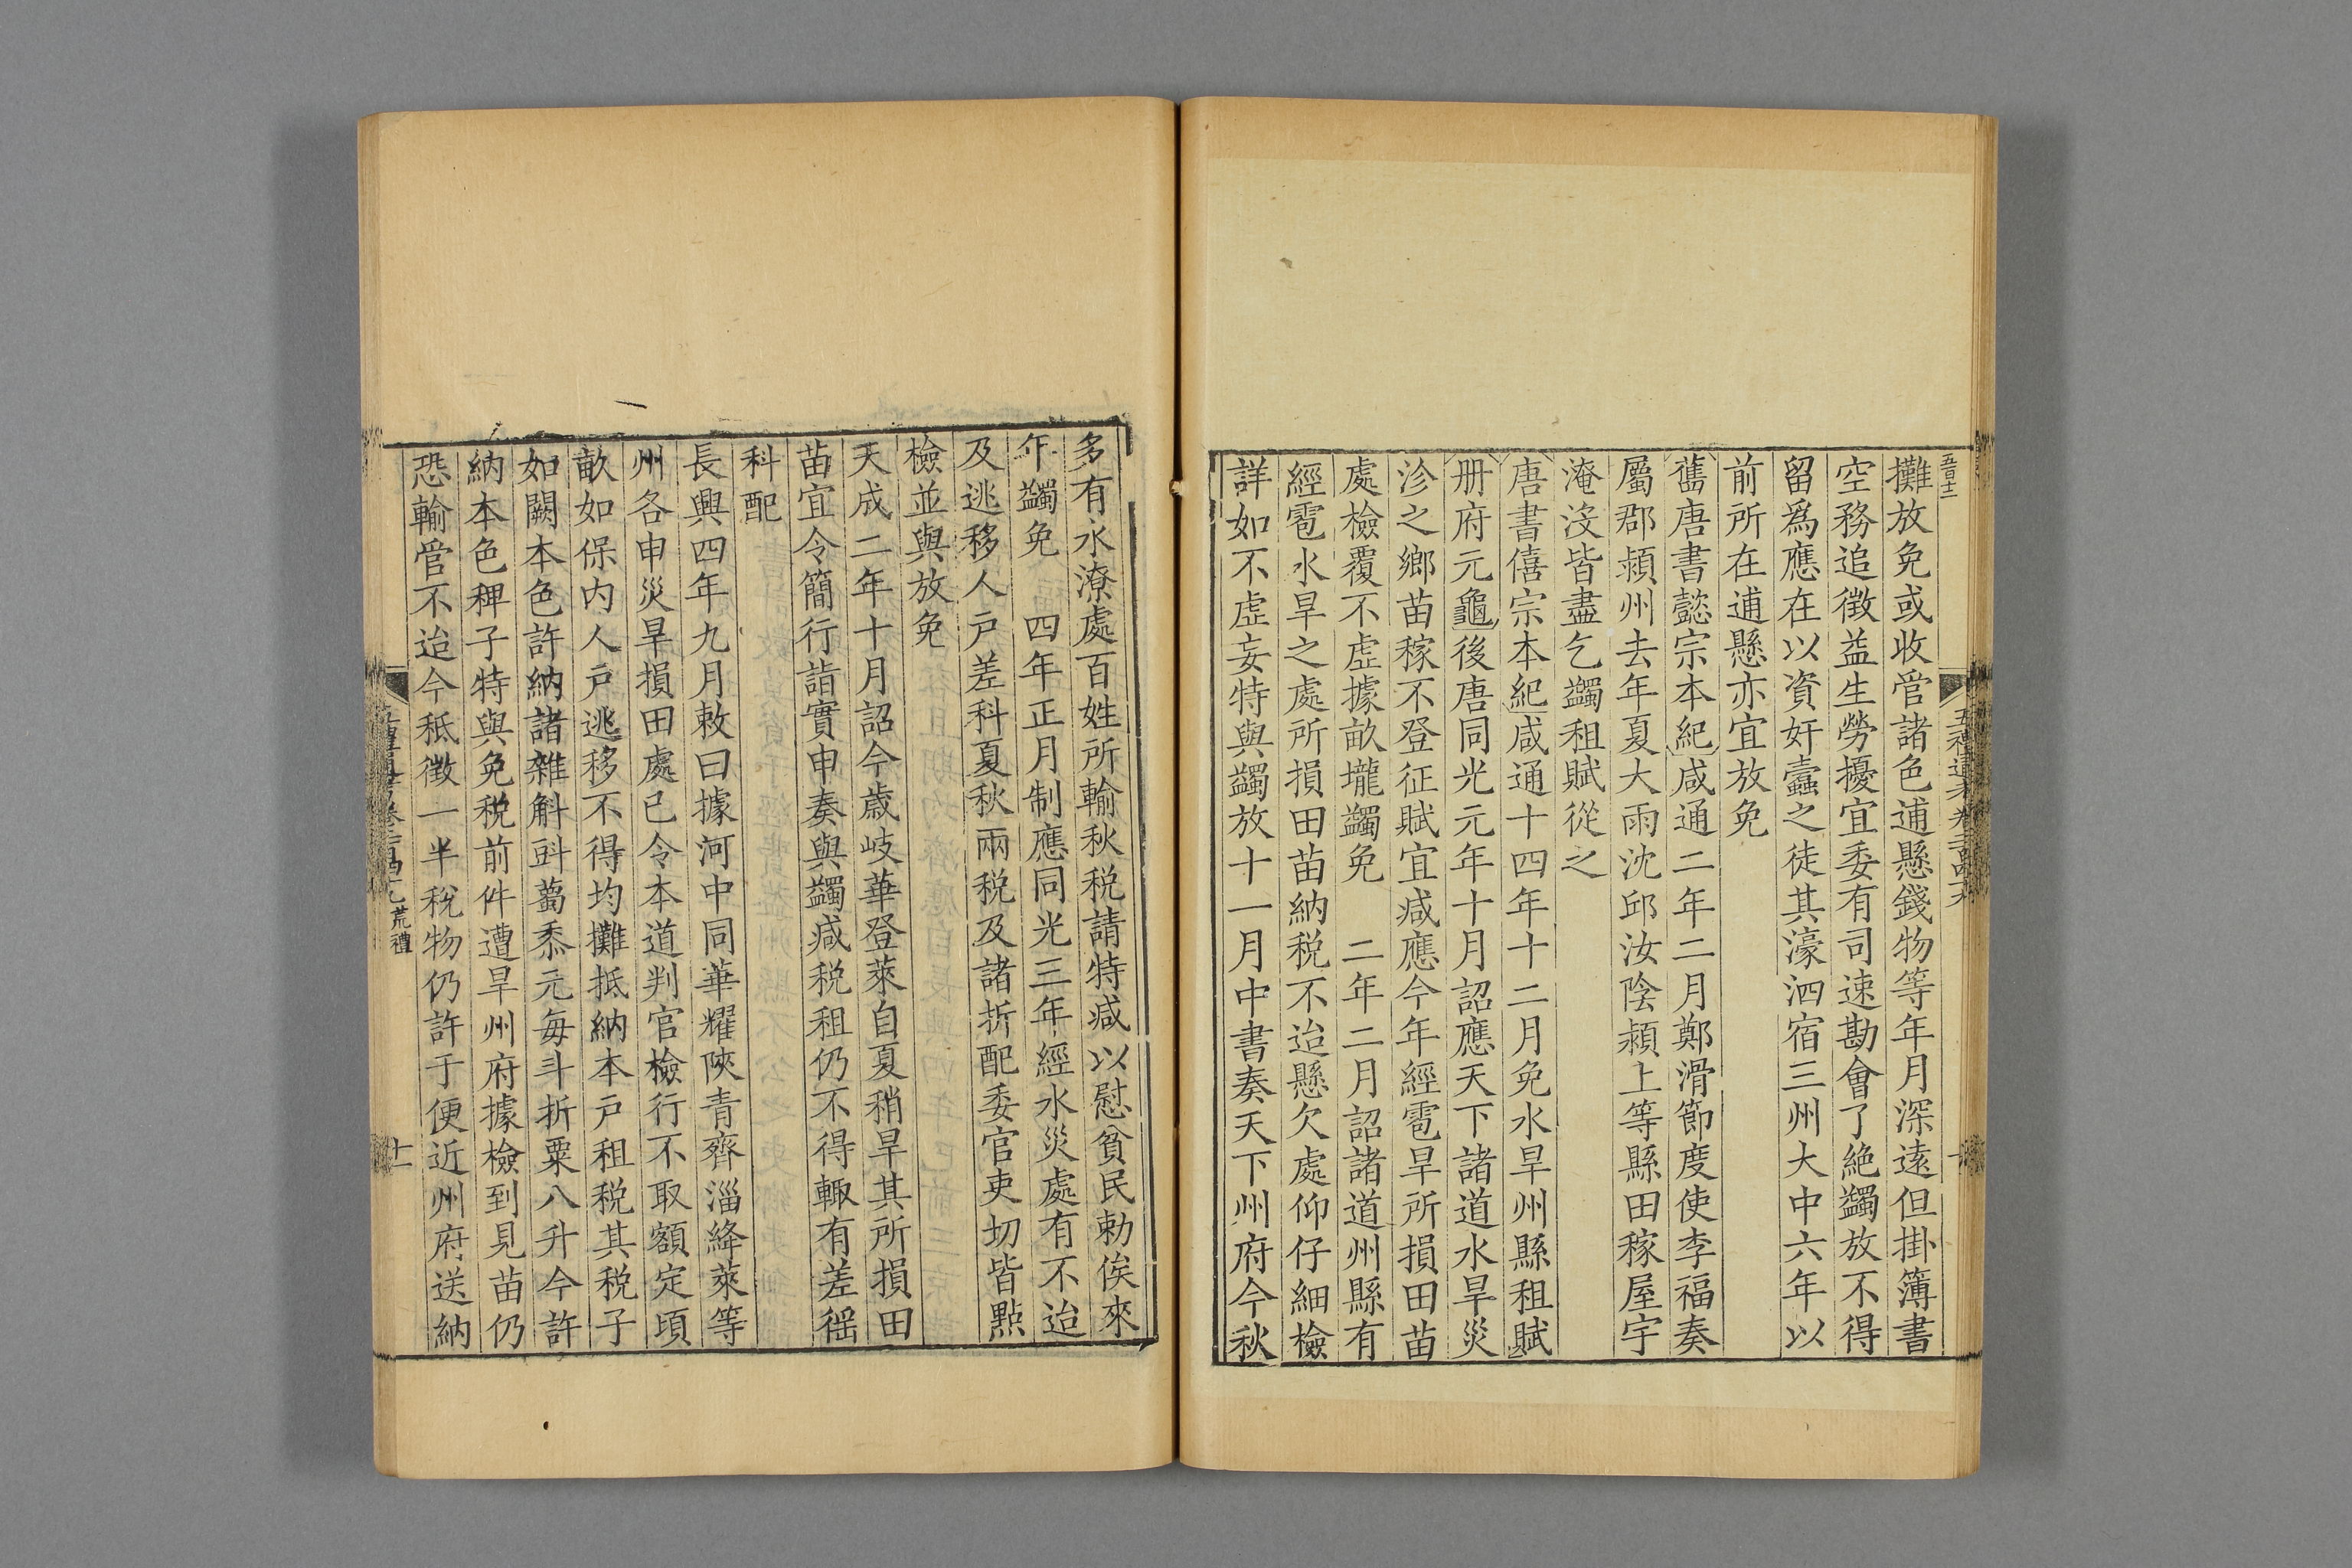 五百十二
攤放免或收管諸色逋懸錢物等年月深遠但掛簿書
空務追徵益生勞擾宜委有司速勘會了絶蠲放不得
留爲應在以資奸蠹之徒其濠泗宿三州大中六年以
前所在逋懸亦宜放免
舊唐書懿宗本紀咸通二年二月鄭滑節度使李福奏
屬郡潁州去年夏大雨沈邱汝陰潁上等縣田稼屋宇
淹沒皆盡乞蠲租賦從之
唐書僖宗本紀咸通十四年十二月免水旱州縣租賦
册府元龜後唐同光元年十月詔應天下諸道水旱災
沴之鄉苗稼不登征賦宜減應今年經雹旱所損田苗
處檢覆不虛據畝壠蠲免　二年二月詔諸道州縣有
經雹水旱之處所損田苗納税不迨懸欠處仰仔細檢
詳如不虛妄特與蠲放十一月中書奏天下州府今秋
多有水潦處百姓所輸秋税請特減以慰貧民勅俟來
年蠲免　四年正月制應同光三年經水災處有不迨
及逃移人戸差科夏秋兩税及諸折配委官吏切皆點
檢並與放免
天成二年十月詔今歲岐華登萊自夏稍旱其所損田
苗宜令簡行詣實申奏與蠲減税租仍不得輙有差徭
科配
長興四年九月敕曰據河中同華耀陝青齊淄絳萊等
州各申災旱損田處已令本道判官檢行不取額定頃
畝如保内人戸逃移不得均攤抵納本戸租税其税子
如闕本色許納諸雜斛㪷蔔黍元每斗折粟八升今許
納本色稗子特與免税前件遭旱州府據檢到見苗仍
恐輸管不迨今秪徵一半税物仍許于便近州府送納
荒禮
十一